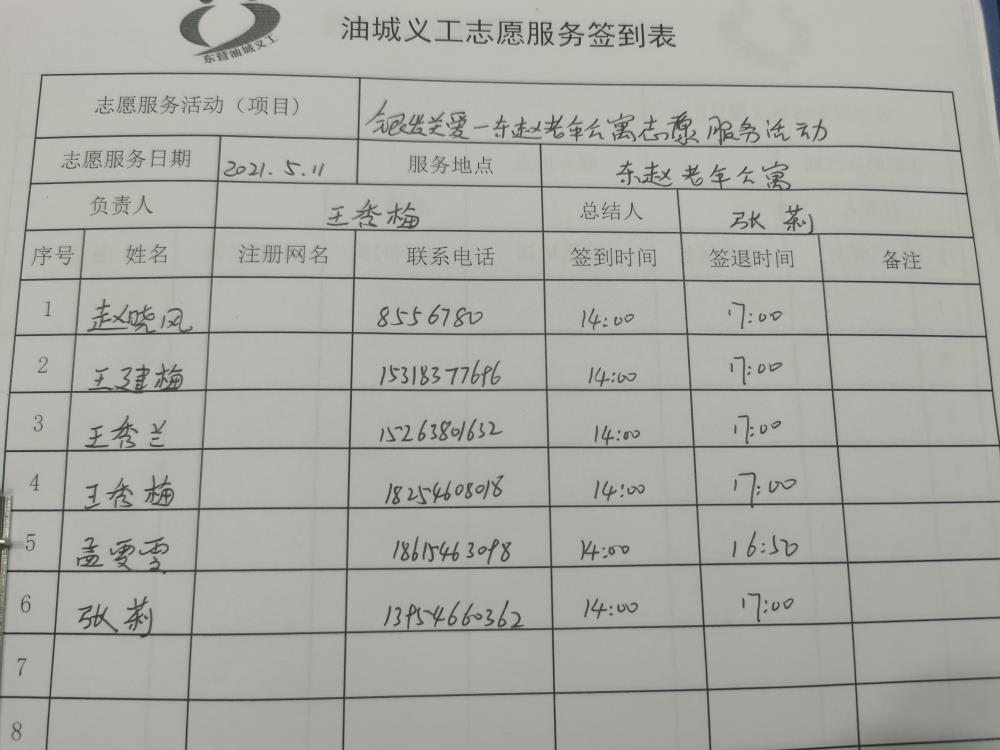 东营油城义工
油城义工志愿服务签到表
志愿服务活动（项目） 银发关爱一东赵老年公寓志愿服务活动
志愿服务日期 2021.5.11 服务地点 东赵老年公寓
负责人 王秀梅 总结人 张莉
序号 姓名 注册网名 联系电话 签到时间 签退时间 备注
1 赵晓风 8556780 14:00 17:00
2 王建梅 15318377696 14:00 17:00
3 王秀兰 15263801632 14:00 17:00
4 王秀梅 18254608018 14:00 17:00
5 孟雯雪 18615463098 14:00 16:50
6 张莉 13954660362 14:00 17:00
7
8